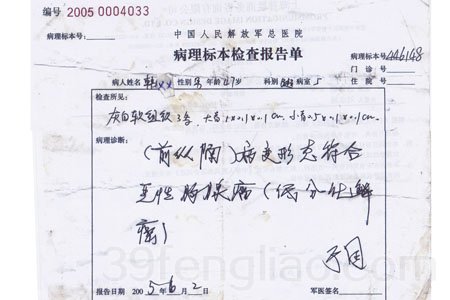 编号 2005 0004033
中国人民解放军总医院
病理标本号:
病理标本检查报告单
病理标本号: 446148
门诊号
病人姓名 韩xx 性别 男 年龄 47岁 科别 病室 5 住院号
检查所见:
灰白软组织3条 大者1x0.1x0.1cm. 小者0.5x0.1x0.1cm.
病理诊断:
(前纵隔)病变形态符合
恶性胸腺瘤(低分化鳞
癌)
39fengliao.com
报告日期 2005年6月2日 军医签名